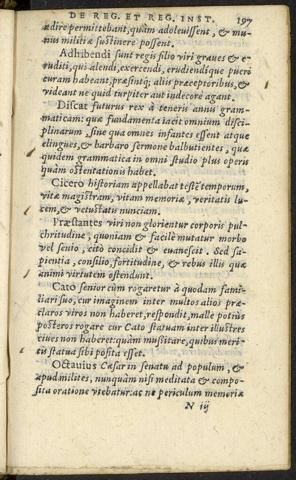 DE REG. ET REG. INST. 197
ædire permittebant, quàm adoleuissent, & mu-
nus militiæ sustinere possent.
Adhibendi sunt regis filio viri graues & e-
ruditi, qui alendi, exercendi, erudiendique pueri
curam habeant, præsintq; alijs præceptoribus, &
videant ne quid turpiter aut indecorè agant.
Discat futurus rex à teneris annis gram-
maticam: quæ fundamenta iacit omnium disci-
plinarum, sine qua omnes infantes essent atque
elingues, & barbaro sermone balbutientes, quæ
quidem grammatica in omni studio plus operis
quàm ostentationis habet.
Cicero historiam appellabat testẽ temporum,
vitæ magistram, vitam memoriæ, veritatis lu-
cem, & vetustatis nunciam.
Præstantes viri non glorientur corporis pul-
chritudine, quoniam & facilè mutatur morbo
vel senio, citò concidit & euanescit. Sed sa-
pientia, consilio, fortitudine, & rebus illis quæ
animi virtutem ostendunt.
Cato senior cùm rogaretur à quodam fami-
liari suo, cur imaginem inter multos alios præ-
claros viros non haberet, respondit, malle potiùs
posteros rogare cur Cato statuam inter illustres
ciues non haberet: quàm mussitare, quibus meri-
tis statua sibi posita esset.
Octauius Cæsar in senatu ad populum, &
apud milites, nunquàm nisi meditata & compo-
sita oratione vtebatur: ac ne periculum memoriæ
N iij